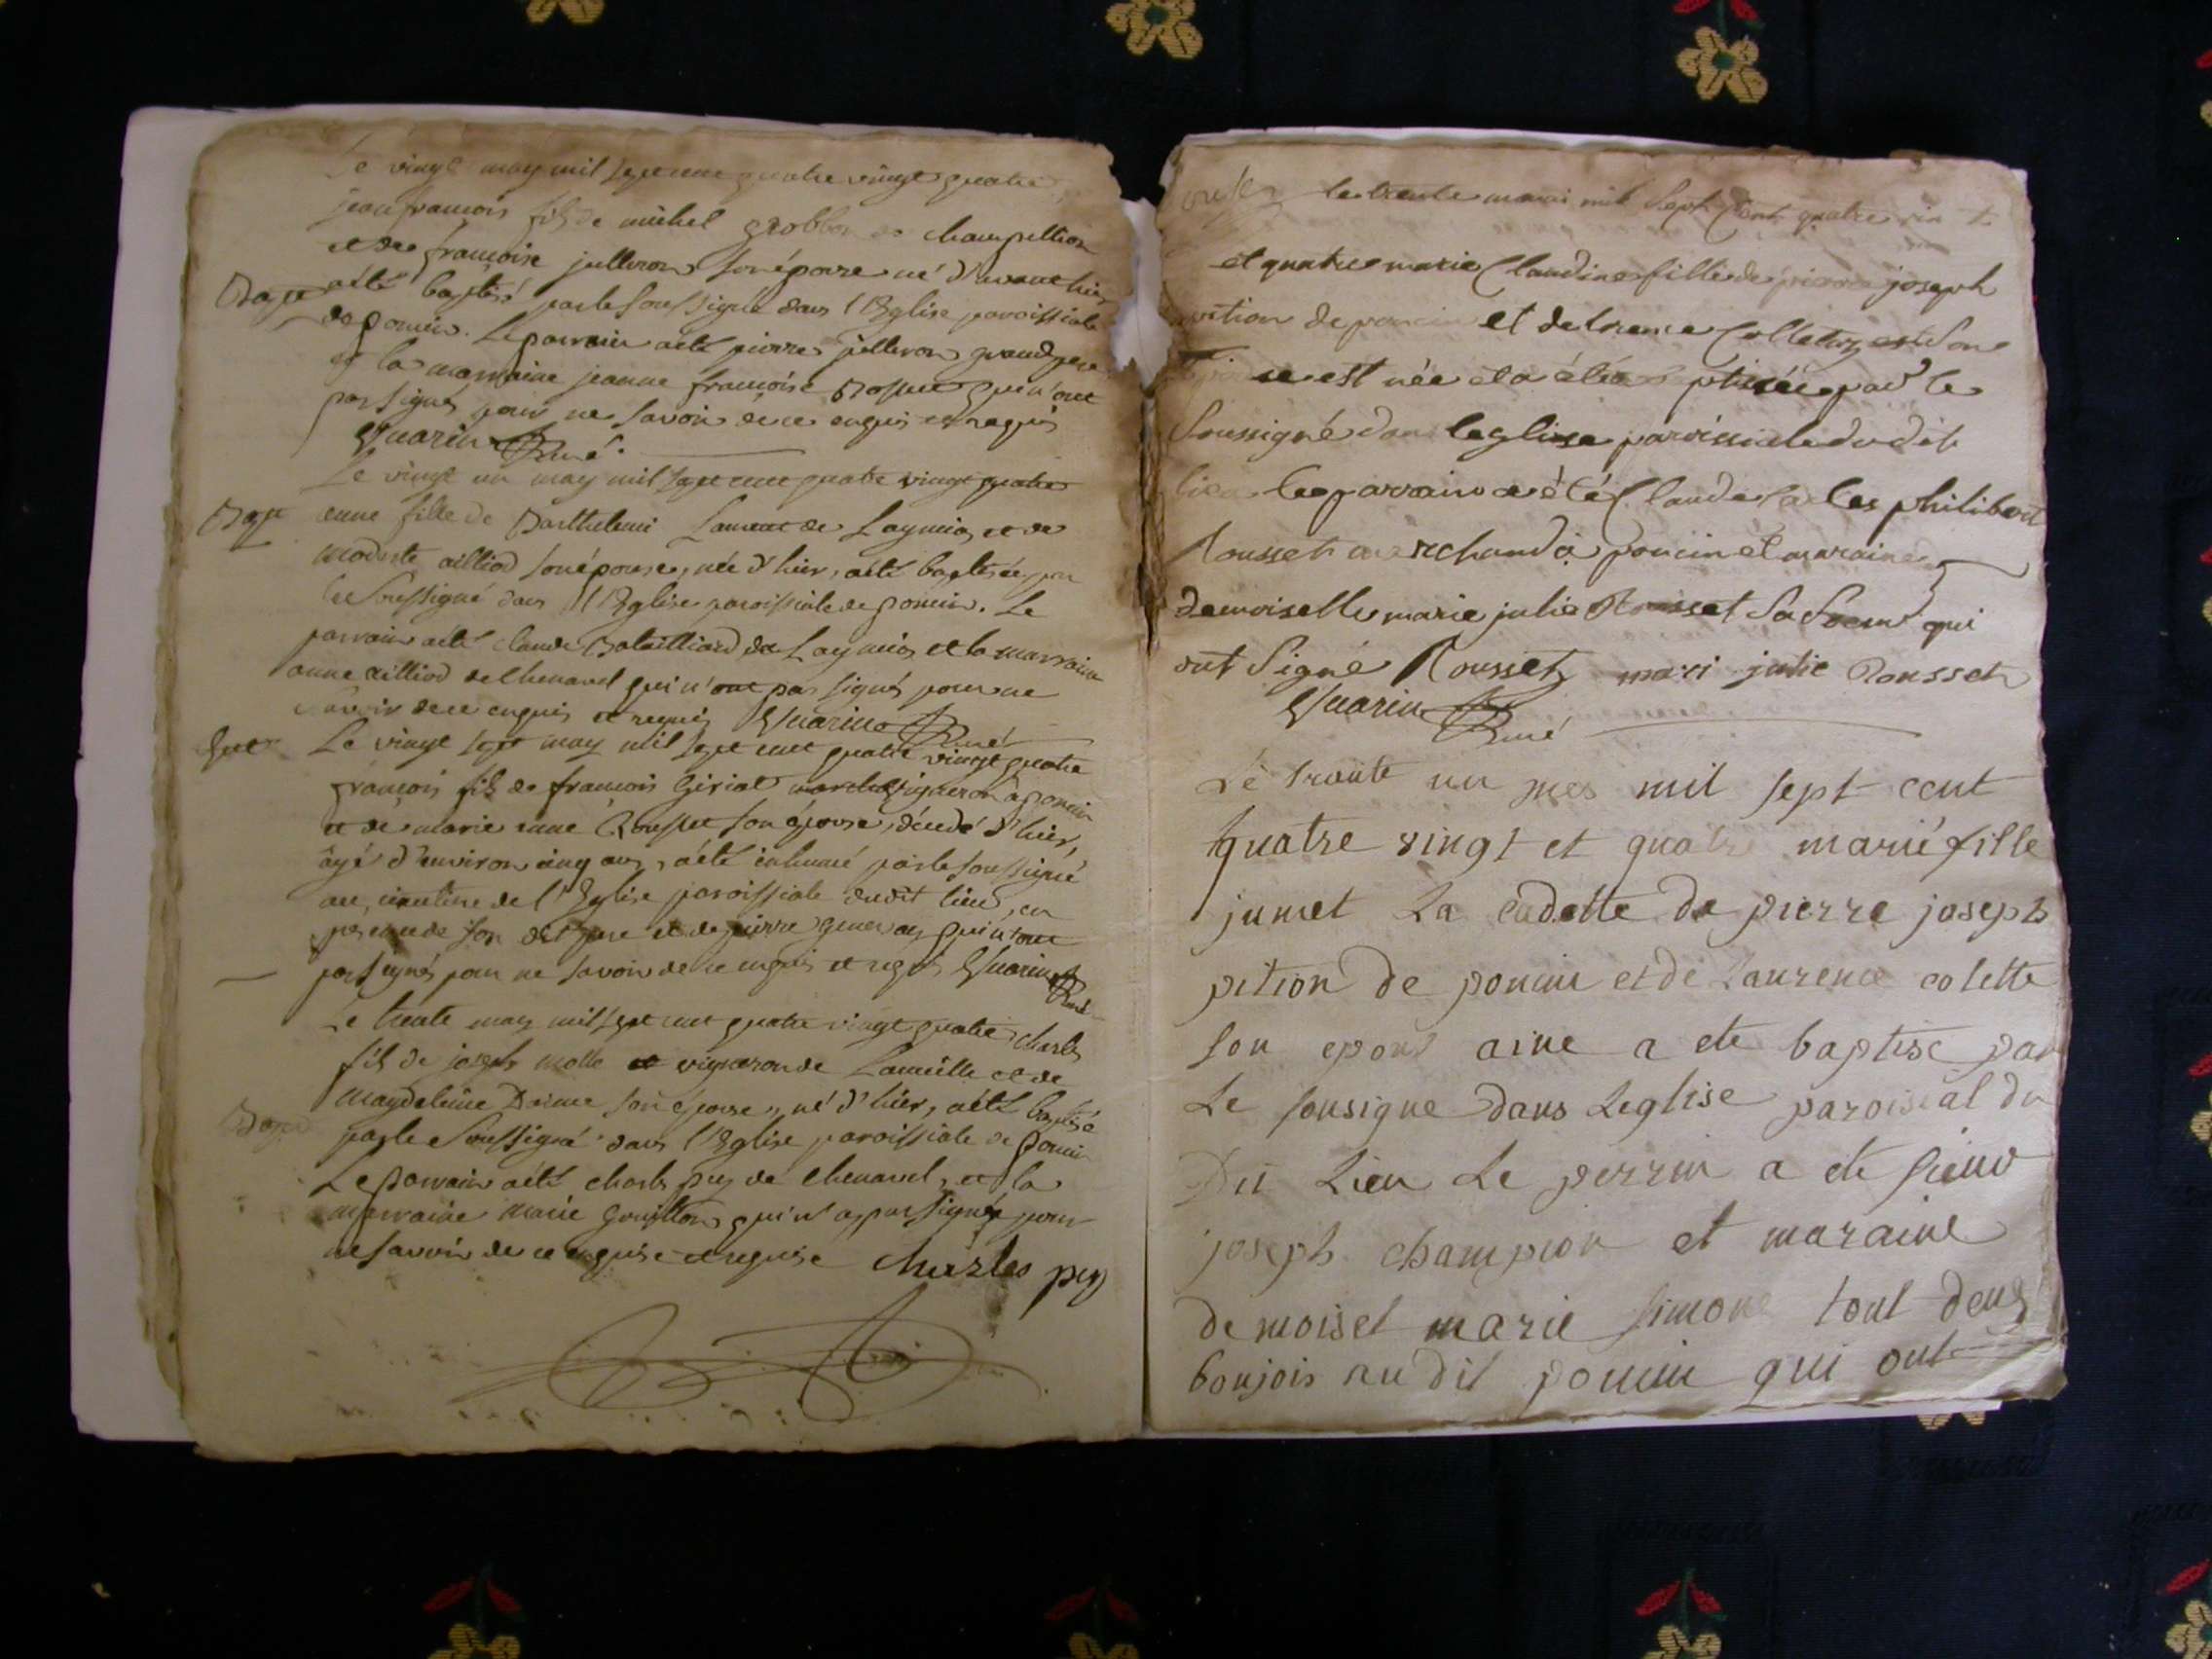 Le vingt may mil sept cent quatre vingt quatre
jean francois fils de michel grobbon de champollion
et de francoise julleron son épouse né d'avant hier
Bapt a été baptisé par le soussigné dans l'Eglise paroissiale
de poncin. Le parrain a été pierre julleron grand pere
et la marraine jeanne francoise qui n'ont
pas signés pour ne savoir de ce enquis et requis
Guarin Curé
Le vingt un may mil sept cent quatre vingt quatre
Bapt anne fille de Barthelemi Laurent de Leymia et de
modeste ailliod son épouse, née d'hier, a été baptisée par
le soussigné dans l'Eglise paroissiale de poncin. Le
parrain a été claude Bataillard de Leymia et la marraine
anne ailliod de Chenavel qui n'ont pas signés pour ne
savoir de ce enquis et requis Guarin Curé
Le vingt sept may mil sept cent quatre vingt quatre
francois fils de francois Girial vigneron a poncin
et de marie anne Rousset son épouse, décédé d'hier,
âgé d'environ cinq ans, a été inhumé par le soussigné
au cimetiere de l'Eglise paroissiale dudit lieu, en
presence de son dit pere et de pierre qui n'ont
pas signés pour ne savoir de ce enquis et requis Guarin Curé
Le trente may mil sept cent quatre vingt quatre charles
fils de joseph molle vigneron de et de
Magdeleine son épouse, né d'hier, a été baptisé
par le Soussigné dans l'Eglise paroissiale de poncin
Le parrain a été charles puy de Chenavel, et la
marraine marie qui n'a pas signée pour
ne savoir de ce enquise et requise Charles puy
le trente mai mil sept cent quatre vin t
et quatre marie Claudine fille de pierre joseph
pition de poncin et de Colletaz son
se est née et a été baptisée par le
Soussigné dans leglise paroissiale dudit
lieu le parrain a été Claude philibert
Rousset marchand a poncin et maraine
demoiselle marie julie Rousset Sa Soeur qui
ont Signé Rousset mari julie Rousset
Guarin Curé
Le trante un mes mil sept cent
quatre vingt et quatre marié fille
jumel La cadette de pierre joseph
pition de poncin et de Laurence colette
son epous aine a ete baptise par
Le sousigne dans Leglise paroisial du
Dit Lieu Le perrin a ete sieur
joseph champion et maraine
demoisel marie simone tout deus
boujois au dit poncin qui ont